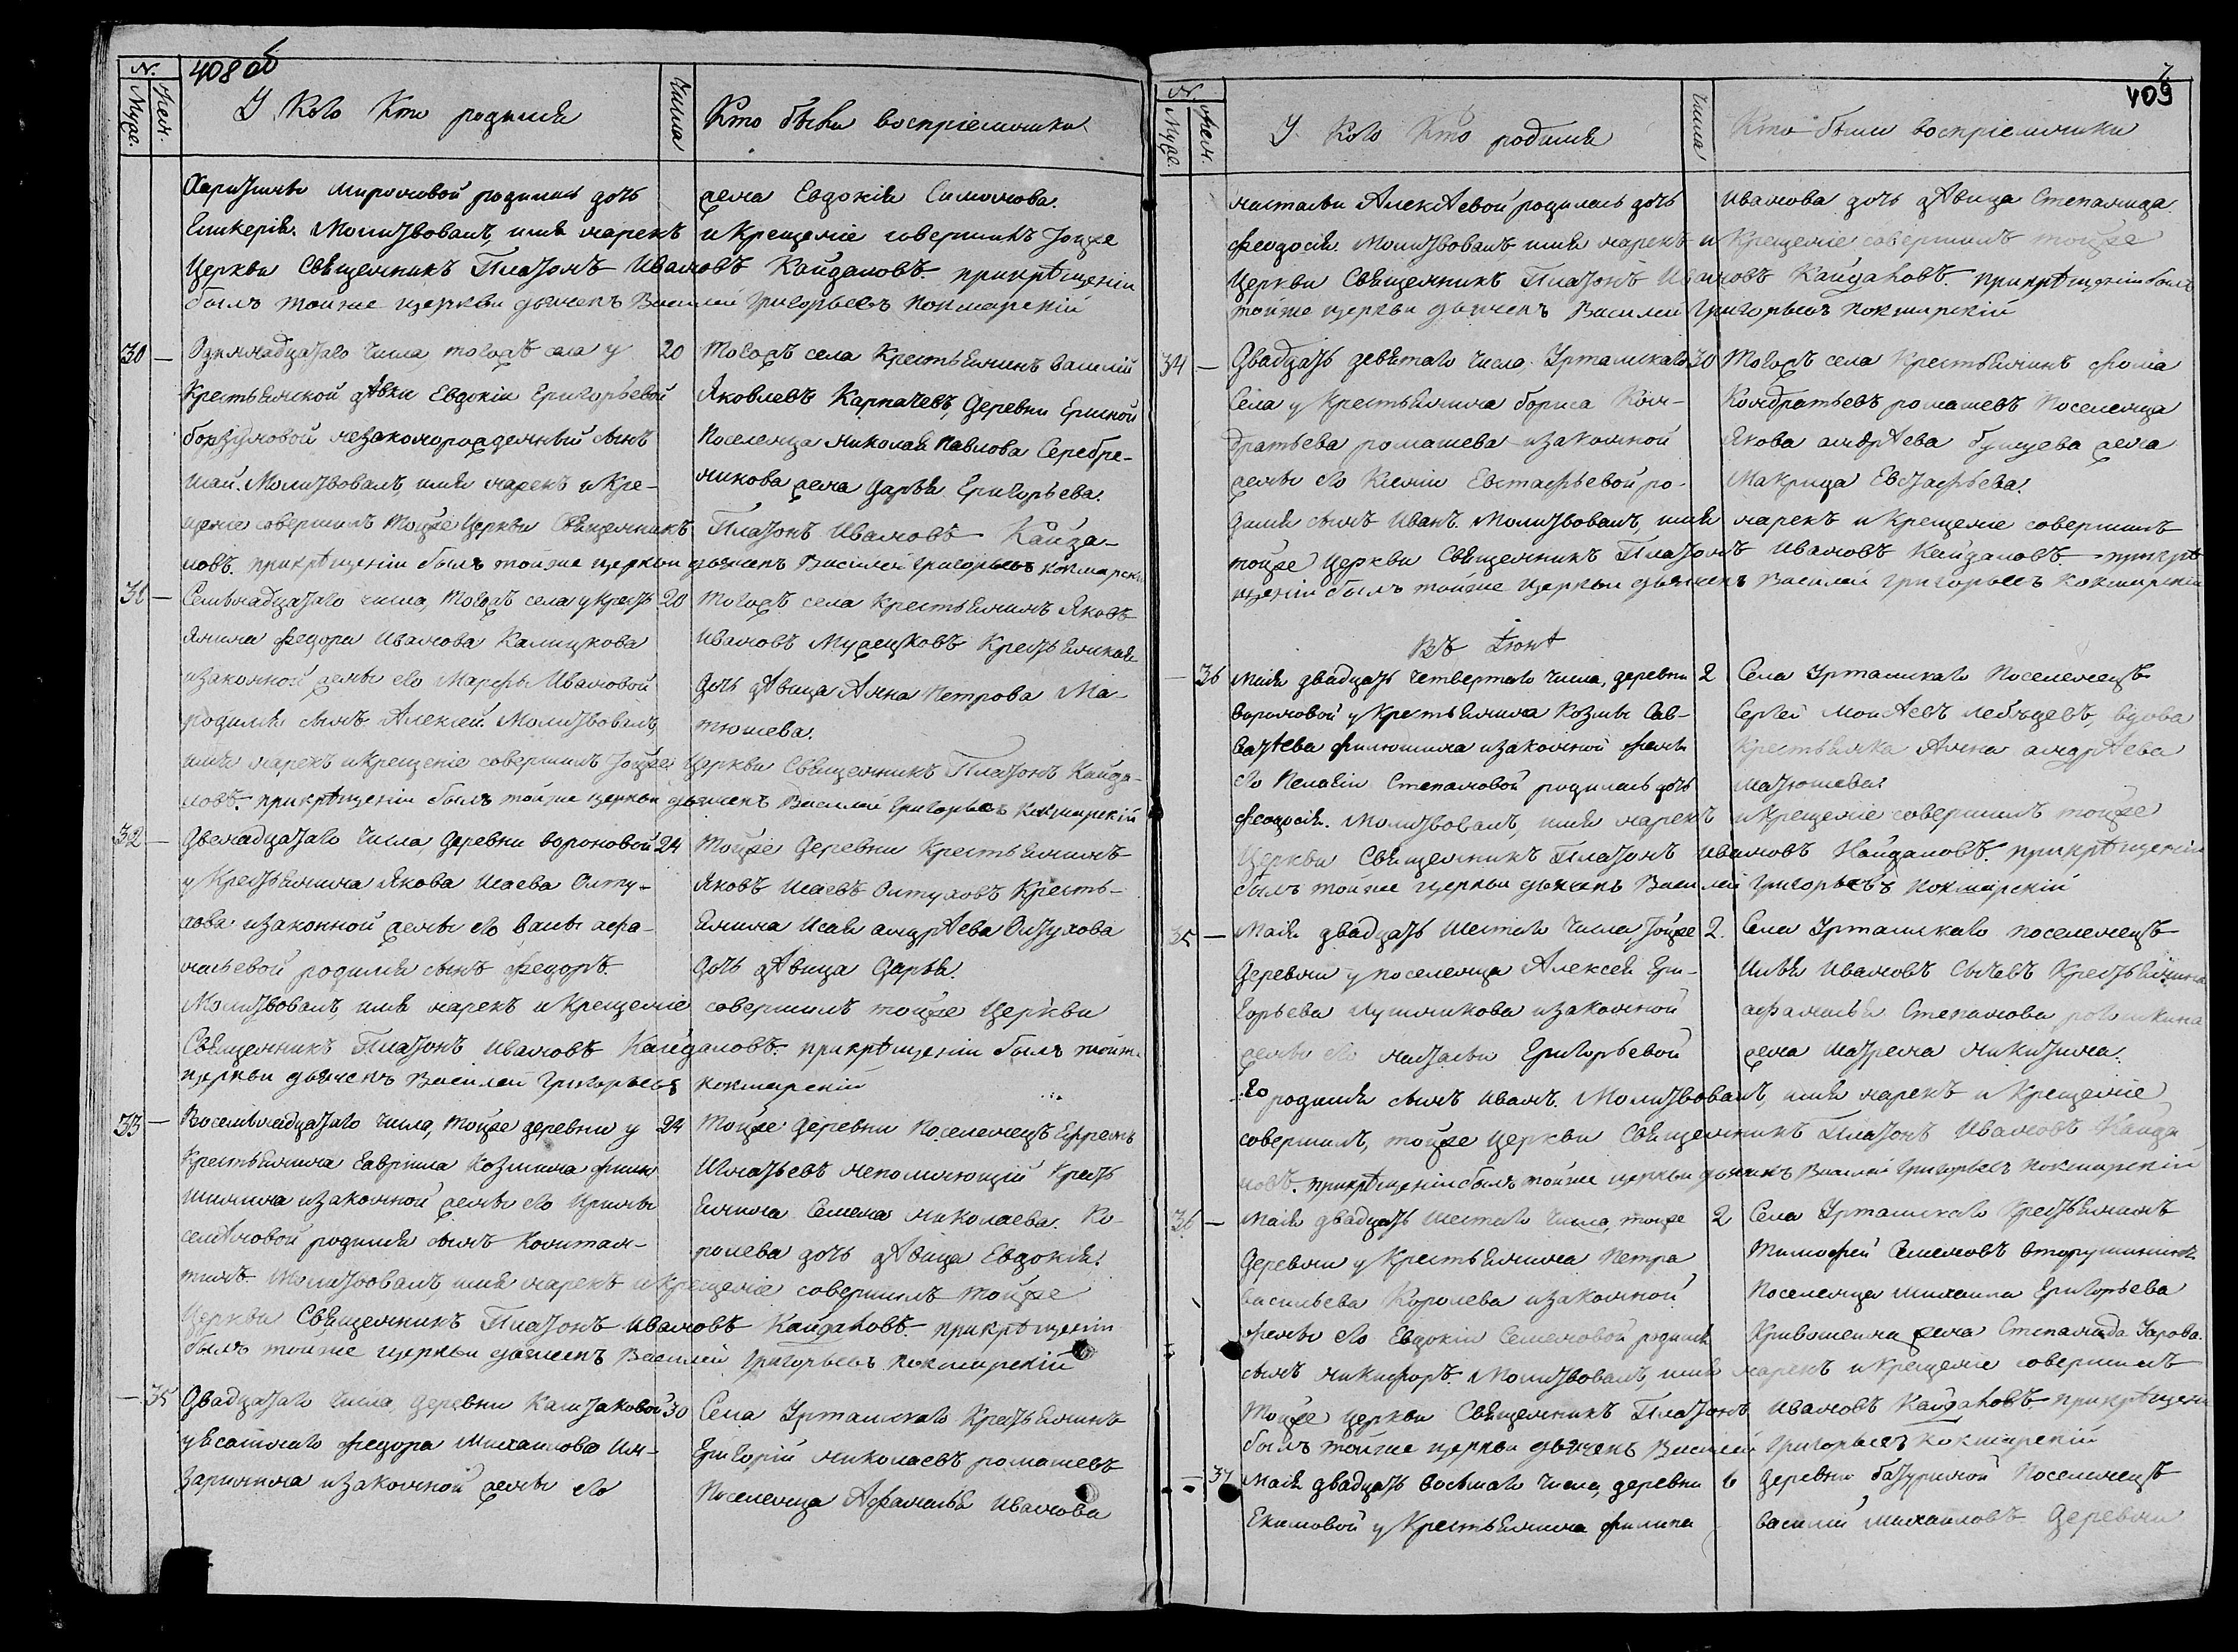 408 об
N.
Муже.
Жен.
У Кого Кто родился
Числа
Кто были воспріемники
Харитины Мироновой родилась дочь
Гликерія. Молитвовалъ, имя нарекъ
Церкви Священникъ Платонъ Ивановъ Кайдаловъ. прикрѣщеніи
былъ тойже церкви дьячекъ Василей Григорьевъ Кокшарскій
жена Евдокія Симонова.
и Крещеніе совершилъ тойже
30 — Одиннадцатаго Числа, тогожъ села у
Крестьянской дѣвки Евдокіи Григорьевой
незаконорожденный сынъ
Молитвовалъ, имя нарекъ и Кре-
щеніе совершилъ тойже Церкви Священникъ Платонъ Ивановъ Кайда-
ловъ. прикрѣщеніи былъ тойже церкви дьячекъ Василей Григорьевъ Кокшарскій
20 Тогожъ села Крестьянинъ Василій
Яковлевъ Карпачевъ, Деревни
Поселенца Николая Павлова Серебре-
никова жена Дарья Григорьева.
31 — Семьнадцатаго числа, Тогожъ села у Кресть-
янина Федора Иванова Калицкова
изаконной жены его Марфы Ивановой
родился сынъ Алексей. Молитвовалъ,
имя нарекъ и Крещеніе совершилъ тойже Церкви Священникъ Платонъ Кайда-
ловъ. прикрѣщеніи былъ тойже церкви дьячекъ Василей Григорьевъ Кокшарскій
20 Тогожъ села Крестьянинъ Яковъ
Ивановъ Крестьянская
дочь дѣвица Анна Петрова Ма-
тюшева.
32 — Двенадцатаго Числа, Деревни Вороновой
у Крестьянина Якова Исаева Олту-
хова изаконной жены его Васы Афа-
насьевой родился сынъ Федоръ.
Молитвовалъ, имя нарекъ и Крещеніе совершилъ тойже Церкви
Священникъ Платонъ Ивановъ Кайдаловъ. прикрѣщеніи былъ тойже
церкви дьячекъ Василей Григорьевъ Кокшарскій
24 Тойже Деревни Крестьянинъ
Яковъ Исаевъ Олтуховъ Кресть-
янина Исая Андрѣева Олтухова
дочь дѣвица Дарья.
33 — Восемьнадцатаго Числа, Тойже деревни у
Крестьянина Гавріила Козмина Филю-
шинина изаконной жены его Ирины
Семѣновой родился сынъ Констан-
тинъ. Молитвовалъ, имя нарекъ и Крещеніе совершилъ тойже
Церкви Священникъ Платонъ Ивановъ Кайдаловъ. прикрѣщеніи
былъ тойже церкви дьячекъ Василей Григорьевъ Кокшарскій
24 Тойже Деревни Поселенецъ Ефремъ
Игнатьевъ Непомнющій Кресть-
янина Семена Николаева Ко-
ролева дочь дѣвица Евдокія.
— 35 Двадцатаго Числа деревни Калтаковой
Федора Михаилова Ин-
изаконной жены его
30 Села Уртамскаго Крестьянинъ
Григорій Николаевъ Ромашевъ
Поселенца Афанасья Иванова
409
N.
Муже.
Жен.
У Кого Кто родился
Числа
Кто были воспріемники
настасьи Алексѣевой родилась дочь
Феодосія. Молитвовалъ имя нарекъ и Крещеніе совершилъ тойже
Церкви Священникъ Платонъ Ивановъ Кайдаловъ. прикрѣщеніи былъ
тойже церкви дьячекъ Василей Григорьевъ Кокшарскій
Иванова дочь дѣвица Степанида.
34 — Двадцать девятаго числа Уртамскаго
Села у Крестьянина Бориса Кон-
дратьева Ромашева изаконной
жены его Ксеніи Евстафьевой ро-
дился сынъ Иванъ. Молитвовалъ, имя нарекъ и Крещеніе совершилъ
тойже Церкви Священникъ Платонъ Ивановъ Кайдаловъ. прикрѣ-
щеніи былъ тойже церкви дьячекъ Василей Григорьевъ Кокшарскій
30 Тогожъ села Крестьянинъ Фома
Кондратьевъ Ромашевъ Поселенца
Якова Андрѣева жена
Макрида Евстафьева.
Въ Іюнѣ
— 36 Маія двадцать Четвертаго Числа, деревни
Вороновой у Крестьянина Козмы Сав-
ватѣева Филюшина изаконной жены
его Пелагіи Степановой родилась дочь
Феодосія. Молитвовалъ, имя нарекъ и Крещеніе совершилъ тойже
Церкви Священникъ Платонъ Ивановъ Кайдаловъ. прикрѣщеніи
былъ тойже церкви дьячекъ Василей Григорьевъ Кокшарскій
2 Села Уртамскаго Поселенецъ
Сергей Моисѣевъ вдова
Крестьянка Анна Андрѣева
Матюшева
35 — Маія двадцать Шестаго Числа тойже
Деревни у поселенца Алексея Гри-
горьева изаконной
жены его Натальи Григорьевой
родился сынъ Иванъ. Молитвовалъ, имя нарекъ и Крещеніе
совершилъ, тойже Церкви Священникъ Платонъ Ивановъ Кайда
ловъ. прикрѣщеніи былъ тойже церкви дьячекъ Василей Григорьевъ Кокшарскій
2. Села Уртамскаго поселенецъ
Илья Ивановъ Сычевъ Крестьянина
Афанасья Степанова
жена Матрена Никитина.
36 — Маія двадцать Шестаго Числа, тойже
Деревни у Крестьянина Петра
Васильева Королева изаконной
жены его Евдокіи Семеновой родился
сынъ Никифоръ. Молитвовалъ, имя нарекъ и Крещеніе совершилъ
тойже Церкви Священникъ Платонъ Ивановъ Кайдаловъ прикрѣщеніи
былъ тойже церкви дьячекъ Василей Григорьевъ Кокшарскій
2 Села Уртамскаго Крестьянинъ
Тимофей Семеновъ Вторушинъ
Поселенца Михаила Григорьева
Кривошеина жена Степанида
— 37 Маія двадцать Восьмаго Числа, деревни
Екимовой у Крестьянина Филипа
6 Деревни Батуриной Поселенецъ
Василій Михаиловъ Деревни